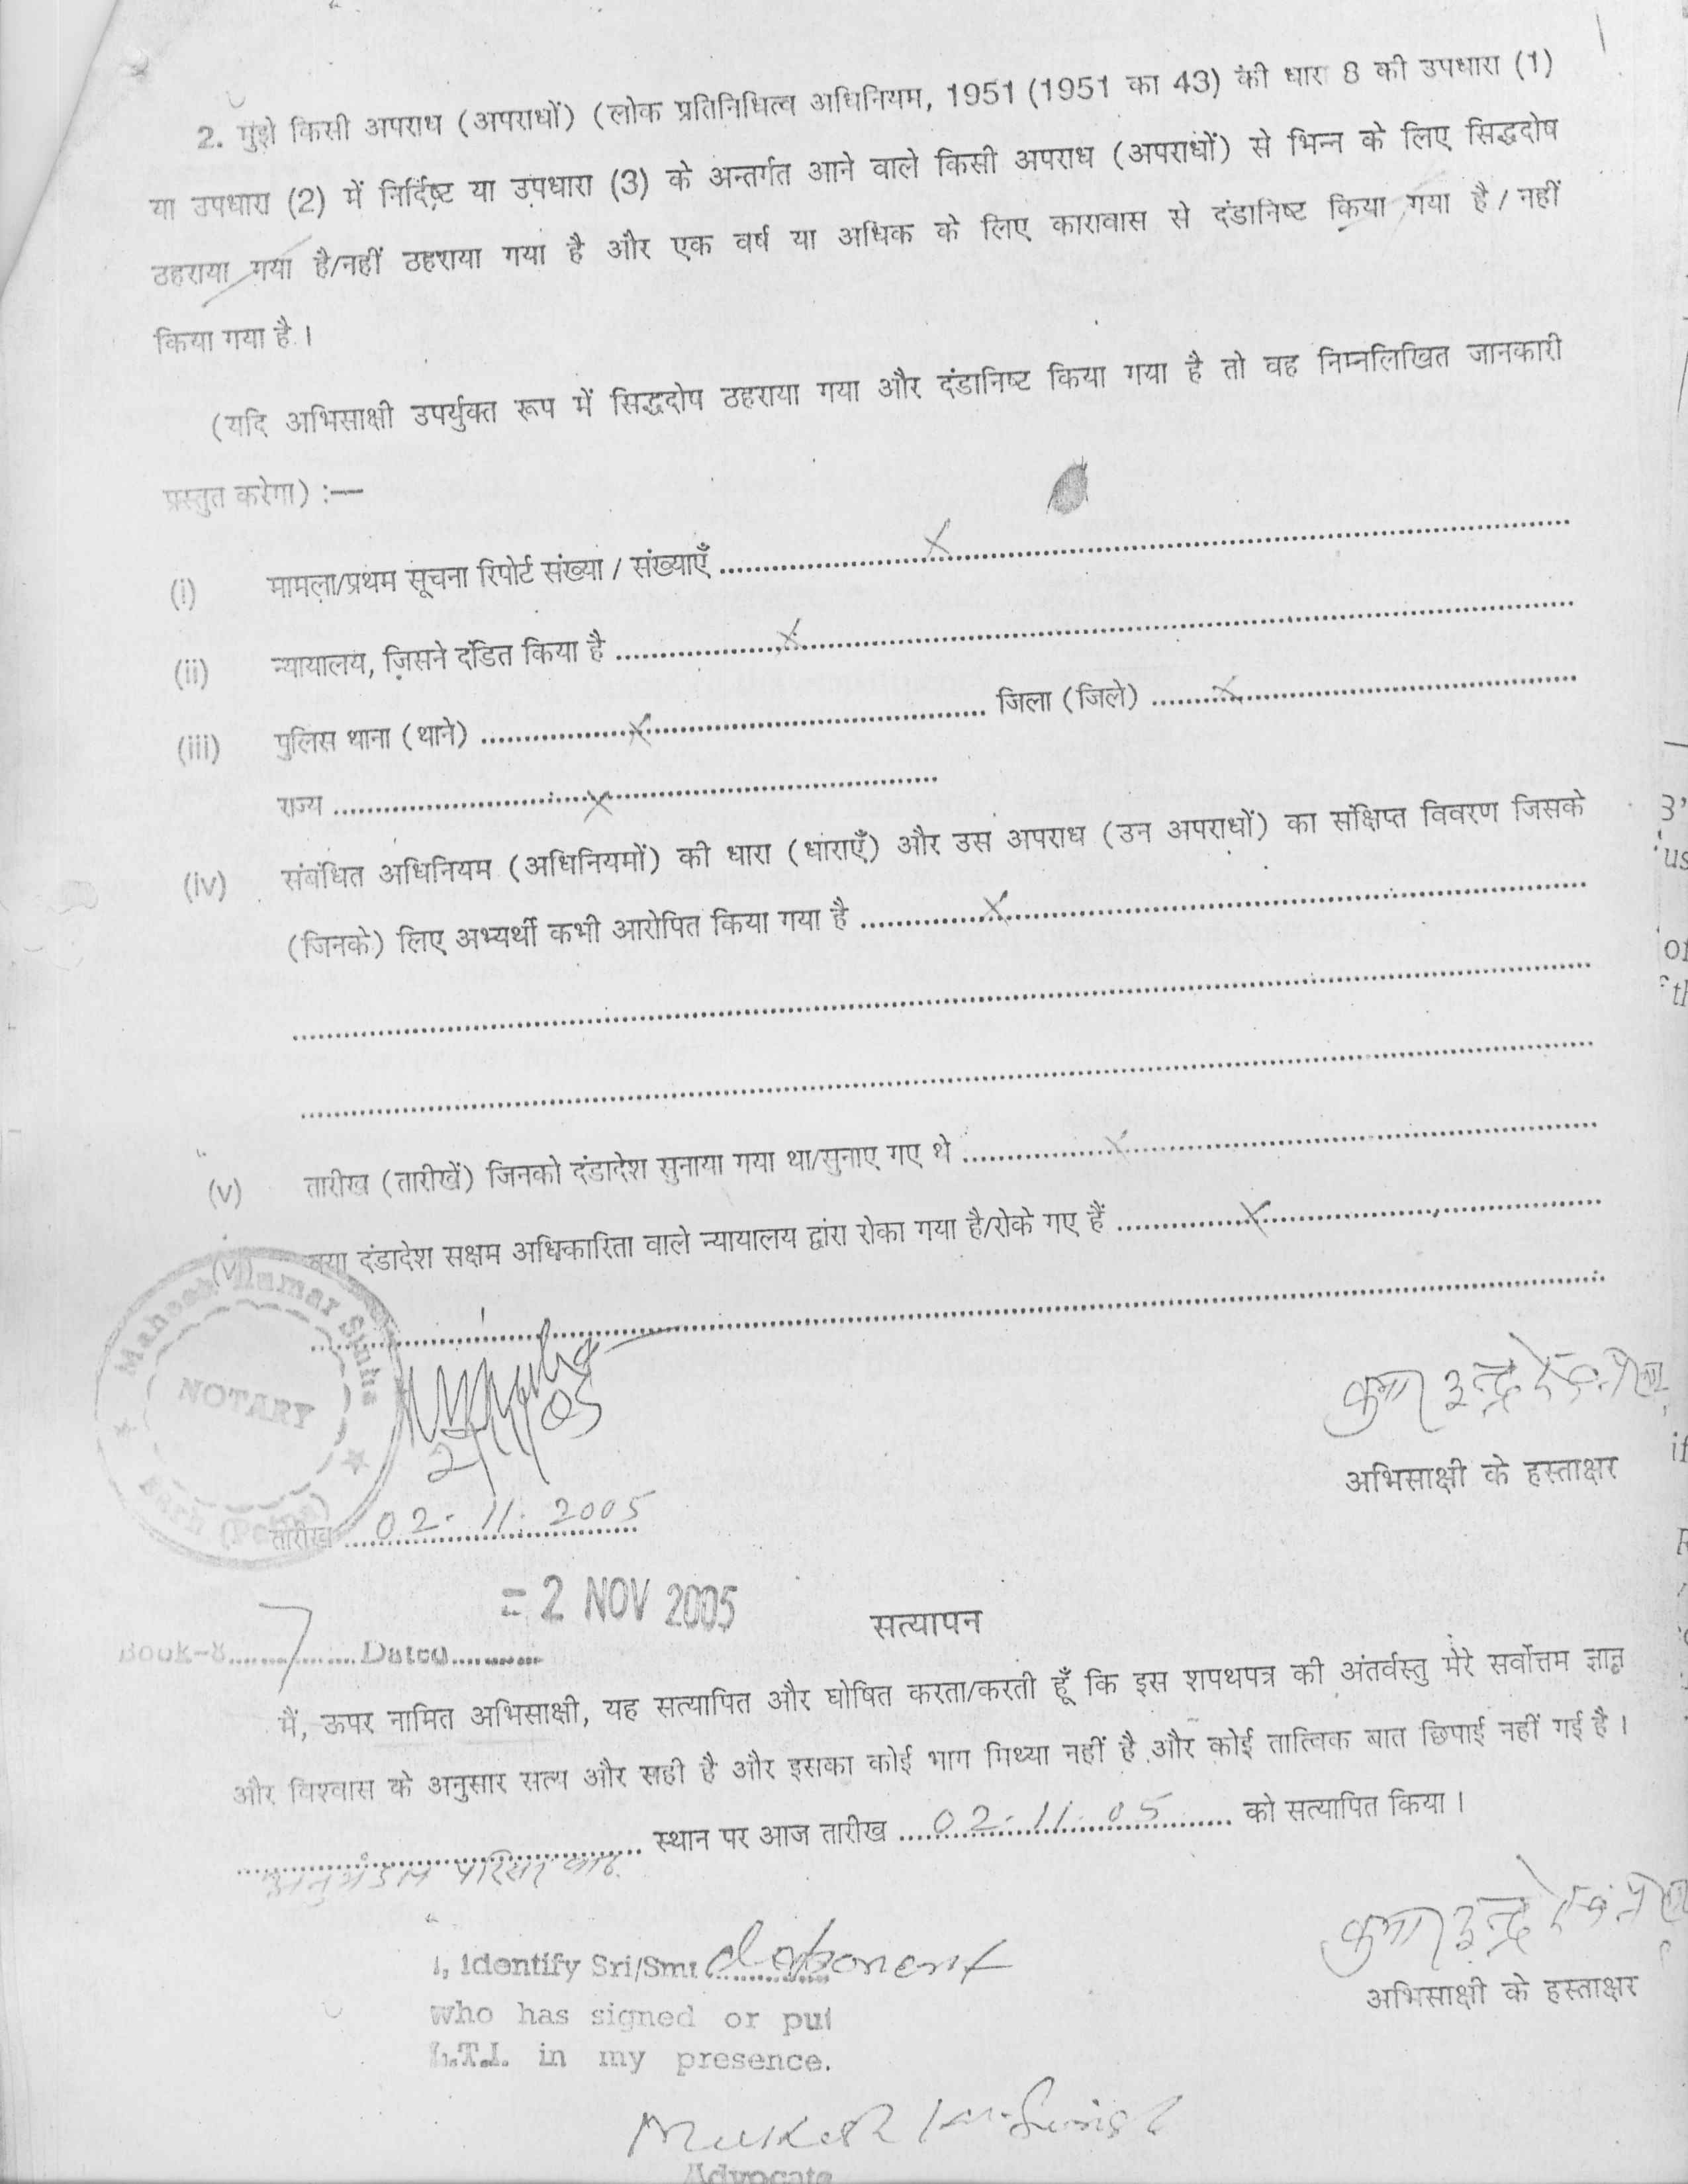 2. मुझे किसी अपराध (अपराधों) (लोक प्रतिनिधित्व अधिनियम, 1951 (1951 का 43) की धारा 8 की उपधारा (1)
या उपधारा (2) में निर्दिष्ट या उपधारा (3) के अन्तर्गत आने वाले किसी अपराध (अपराधों) से भिन्न के लिए सिद्धदोष
ठहराया गया है/नहीं ठहराया गया है और एक वर्ष या अधिक के लिए कारावास से दंडानिष्ट किया गया है / नहीं
किया गया है ।
(यदि अभिसाक्षी उपर्युक्त रूप में सिद्धदोष ठहराया गया और दंडानिष्ट किया गया है तो वह निम्नलिखित जानकारी
प्रस्तुत करेगा) :—
(i) मामला/प्रथम सूचना रिपोर्ट संख्या / संख्याएँ ........ X ........
(ii) न्यायालय, जिसने दंडित किया है ........ X ........
(iii) पुलिस थाना (थाने) ........ X ........ जिला (जिले) ........ X ........
राज्य ........ X ........
(iv) संबंधित अधिनियम (अधिनियमों) की धारा (धाराएँ) और उस अपराध (उन अपराधों) का संक्षिप्त विवरण जिसके
(जिनके) लिए अभ्यर्थी कभी आरोपित किया गया है ........ X ........
(v) तारीख (तारीखें) जिनको दंडादेश सुनाया गया था/सुनाए गए थे ........ X ........
(vi) क्या दंडादेश सक्षम अधिकारिता वाले न्यायालय द्वारा रोका गया है/रोके गए हैं ........ X ........
Mahesh Kumar Sinha
NOTARY
Barh (Patna)
अभिसाक्षी के हस्ताक्षर
तारीख 02.11.2005
= 2 NOV 2005
Book-8 ... 7 ... Dated ........
सत्यापन
मैं, ऊपर नामित अभिसाक्षी, यह सत्यापित और घोषित करता/करती हूँ कि इस शपथपत्र की अंतर्वस्तु मेरे सर्वोत्तम ज्ञान
और विश्वास के अनुसार सत्य और सही है और इसका कोई भाग मिथ्या नहीं है और कोई तात्विक बात छिपाई नहीं गई है ।
अनुमंडल परिसर बाढ़ स्थान पर आज तारीख 02.11.05 को सत्यापित किया ।
I, Identify Sri/Smt deponent
who has signed or put
L.T.I. in my presence.
अभिसाक्षी के हस्ताक्षर
Mukesh Kr. Singh
Advocate